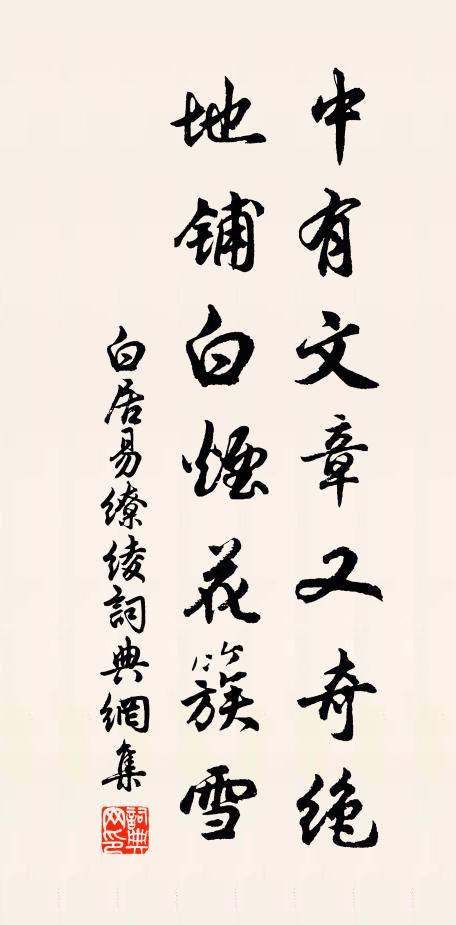 中有文章又奇绝
地铺白煙花簇雪
白居易繚綾詞典網集
詞典网印